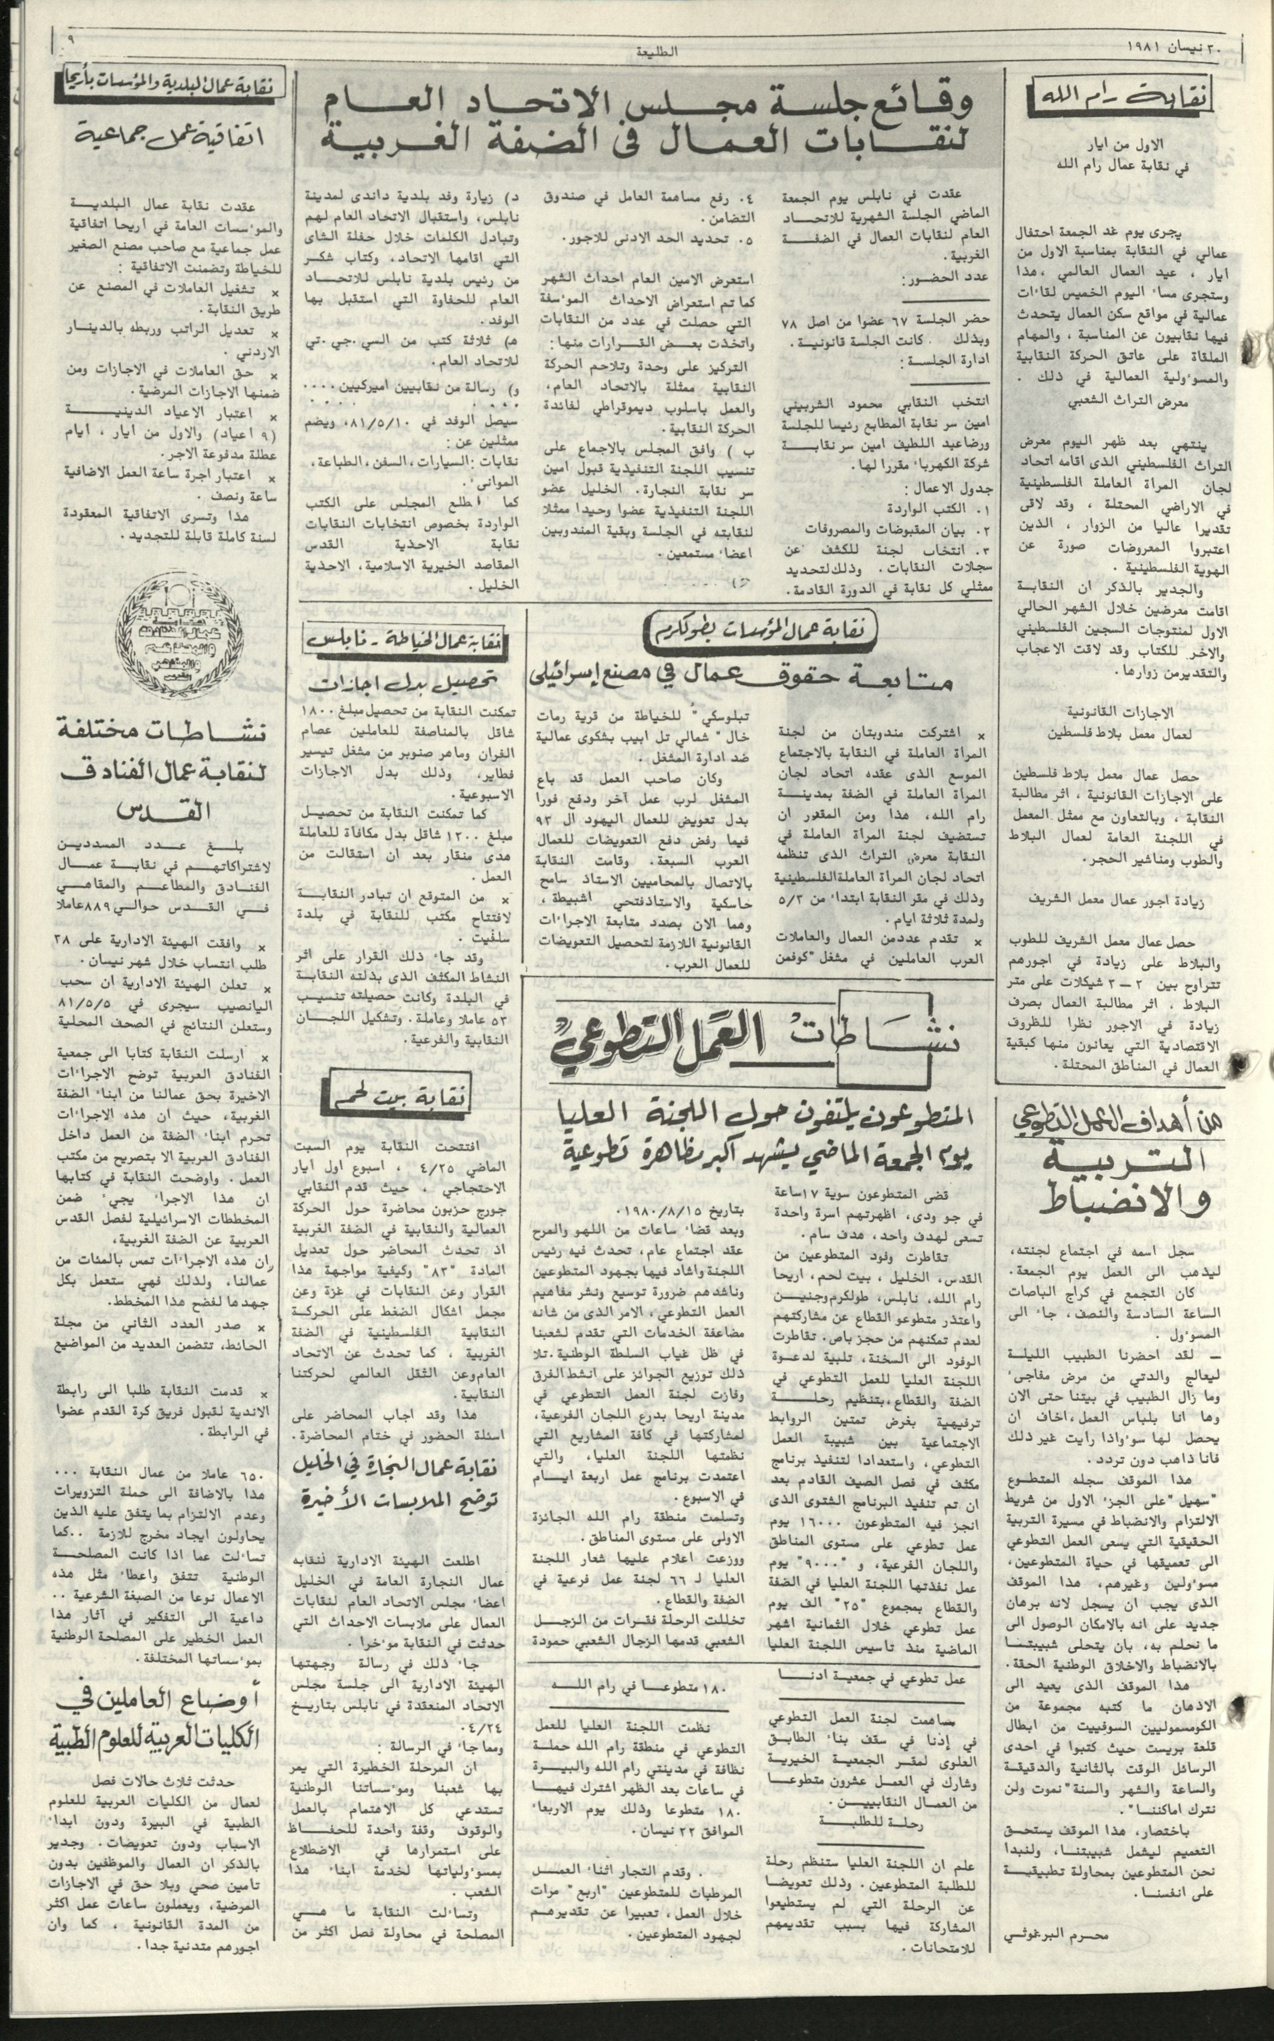 ٣٠ نيسان ١٩٨١
الطليعة
٩
نقابة رام الله
الاول من ايار
في نقابة عمال رام الله
يجرى يوم غد الجمعة احتفال
عمالي في النقابة بمناسبة الاول من
ايار ، عيد العمال العالمي ، هذا
وستجرى مساء اليوم الخميس لقاءات
عمالية في مواقع سكن العمال يتحدث
فيها نقابيون عن المناسبة ، والمهام
الملقاة على عاتق الحركة النقابية
والمسوءولية العمالية في ذلك .
معرض التراث الشعبي
ينتهي بعد ظهر اليوم معرض
التراث الفلسطيني الذى اقامه اتحاد
لجان المرأة العاملة الفلسطينية
في الاراضي المحتلة ، وقد لاقى
تقديرا عاليا من الزوار ، الذين
اعتبروا المعروضات صورة عن
الهوية الفلسطينية .
والجدير بالذكر ان النقابة
اقامت معرضين خلال الشهر الحالي
الاول لمنتوجات السجين الفلسطيني
والاخر للكتاب وقد لاقت الاعجاب
والتقدير من زوارها .
الاجازات القانونية
لعمال معمل بلاط فلسطين
حصل عمال معمل بلاط فلسطين
على الاجازات القانونية ، اثر مطالبة
النقابة ، وبالتعاون مع ممثل المعمل
في اللجنة العامة لعمال البلاط
والطوب ومناشير الحجر .
زيادة اجور عمال معمل الشريف
حصل عمال معمل الشريف للطوب
والبلاط على زيادة في اجورهم
تتراوح بين ٢ – ٣ شيكلات على متر
البلاط . اثر مطالبة العمال بصرف
زيادة في الاجور نظرا للظروف
الاقتصادية التي يعانون منها كبقية
العمال في المناطق المحتلة .
من أهداف العمل التطوعي
التربية
والانضباط
سجل اسمه في اجتماع لجنته،
ليذهب الى العمل يوم الجمعة.
كان التجمع في كراج الباصات
الساعة السادسة والنصف، جاء الى
المسوءول .
– لقد احضرنا الطبيب الليلة
ليعالج والدتي من مرض مفاجىء
وما زال الطبيب في بيتنا حتى الان
وها انا بلباس العمل، اخاف ان
يحصل لها سوء واذا رايت غير ذلك
فانا ذاهب دون تردد.
هذا الموقف سجله المتطوع
"سهيل" على الجزء الاول من شريط
الالتزام والانضباط في مسيرة التربية
الحقيقية التي يسعى العمل التطوعي
الى تعميقها في حياة المتطوعين،
مسوءولين وغيرهم، هذا الموقف
الذى يجب ان يسجل لانه برهان
جديد على انه بالامكان الوصول الى
ما نحلم به، بان يتحلى شبيبتنا
بالانضباط والاخلاق الوطنية الحقة.
هذا الموقف الذى يعيد الى
الاذهان ما كتبه مجموعة من
الكومسموليين السوفييت من ابطال
قلعة بريست حيث كتبوا في احدى
الرسائل الوقت بالثانية والدقيقة
والساعة والشهر والسنة "نموت ولن
نترك اماكننا".
باختصار، هذا الموقف يستحق
التعميم ليشمل شبيبتنا، ولنبدا
نحن المتطوعين بمحاولة تطبيقية
على انفسنا.
محرم البرغوثي
وقائع جلسة مجلس الاتحاد العام
لنقابات العمال في الضفة الغربية
عقدت في نابلس يوم الجمعة
الماضي الجلسة الشهرية للاتحاد
العام لنقابات العمال في الضفة
الغربية.
عدد الحضور:
حضر الجلسة ٦٧ عضوا من اصل ٧٨
وبذلك . كانت الجلسة قانونية .
ادارة الجلسة :
انتخب النقابي محمود الشربيني
امين سر نقابة المطابع رئيسا للجلسة
ورضا عبد اللطيف امين سر نقابة
شركة الكهرباء مقررا لها.
جدول الاعمال :
١. الكتب الواردة
٢. بيان المقبوضات والمصروفات
٣. انتخاب لجنة للكشف عن
سجلات النقابات. وذلك لتحديد
ممثلي كل نقابة في الدورة القادمة.
٤. رفع مساهمة العامل في صندوق
التضامن.
٥. تحديد الحد الادنى للاجور.
استعرض الامين العام احداث الشهر
كما تم استعراض الاحداث الموءسفة
التي حصلت في عدد من النقابات
واتخذت بعض القرارات منها :
التركيز على وحدة وتلاحم الحركة
النقابية ممثلة بالاتحاد العام،
والعمل باسلوب ديموقراطي لفائدة
الحركة النقابية.
ب ) وافق المجلس بالاجماع على
تنسيب اللجنة التنفيذية قبول امين
سر نقابة النجارة. الخليل عضو
اللجنة التنفيذية عضوا وحيدا ممثلا
لنقابته في الجلسة وبقية المندوبين
اعضاء مستمعين .
د) زيارة وفد بلدية داندى لمدينة
نابلس، واستقبال الاتحاد العام لهم
وتبادل الكلمات خلال حفلة الشاى
التي اقامها الاتحاد، وكتاب شكر
من رئيس بلدية نابلس للاتحاد
العام للحفاوة التي استقبل بها
الوفد.
ه) ثلاثة كتب من السي.جي.تي
للاتحاد العام.
و) رسالة من نقابيين اميركيين ....
سيصل الوفد في ٨١/٥/١٠، ويضم
ممثلين عن :
نقابات :السيارات، السفن، الطباعة،
الموانىء.
كما اطلع المجلس على الكتب
الواردة بخصوص انتخابات النقابات
نقابة الاحذية القدس
المقاصد الخيرية الاسلامية، الاحذية
الخليل.
نقابة عمال المؤسسات بطولكرم
متابعة حقوق عمال في مصنع إسرائيلي
× اشتركت مندوبتان من لجنة
المرأة العاملة في النقابة بالاجتماع
الموسع الذى عقده اتحاد لجان
المرأة العاملة في الضفة بمدينة
رام الله، هذا ومن المقرر ان
تستضيف لجنة المرأة العاملة في
النقابة معرض التراث الذى تنظمه
اتحاد لجان المرأة العاملة الفلسطينية
وذلك في مقر النقابة ابتداء من ٥/٢
ولمدة ثلاثة ايام .
× تقدم عدد من العمال والعاملات
العرب العاملين في مشغل "كوفمن
تبلوسكي" للخياطة من قرية رمات
خال " شمالي تل ابيب بشكوى عمالية
ضد ادارة المشغل .
وكان صاحب العمل قد باع
المشغل لرب عمل آخر ودفع فورا
بدل تعويض للعمال اليهود ال ٩٣
فيما رفض دفع التعويضات للعمال
العرب السبعة. وقامت النقابة
بالاتصال بالمحاميين الاستاذ سامح
حاسكية والاستاذ فتحي اشبيطة ،
وهما الان بصدد متابعة الاجراءات
القانونية اللازمة لتحصيل التعويضات
للعمال العرب .
نقابة عمال الخياطة - نابلس
تحصيل بدل اجازات
تمكنت النقابة من تحصيل مبلغ ١٨٠٠
شاقل بالمناصفة للعاملين عصام
الفران وماهر صنوبر من مشغل تيسير
فطاير، وذلك بدل الاجازات
الاسبوعية .
كما تمكنت النقابة من تحصيل
مبلغ ١٢٠٠ شاقل بدل مكافأة للعاملة
هدى منقار بعد ان استقالت من
العمل .
× من المتوقع ان تبادر النقابة
لافتتاح مكتب للنقابة في بلدة
سلفيت .
وقد جاء ذلك القرار على اثر
النشاط المكثف الذى بذلته النقابة
في البلدة وكانت حصيلته تنسيب
٥٣ عاملا وعاملة . وتشكيل اللجان
النقابية والفرعية .
نشاطات العمل التطوعي
المتطوعون يلتفون حول اللجنة العليا
يوم الجمعة الماضي يشهد اكبر مظاهرة تطوعية
قضى المتطوعون سوية ١٧ ساعة
في جو ودى، اظهرتهم اسرة واحدة
تسعى لهدف واحد، هدف سام .
تقاطرت وفود المتطوعين من
القدس، الخليل ، بيت لحم، اريحا
رام الله، نابلس، طولكرم وجنين
واعتذر متطوعو القطاع عن مشاركتهم
لعدم تمكنهم من حجز باص. تقاطرت
الوفود الى السخنة، تلبية لدعوة
اللجنة العليا للعمل التطوعي في
الضفة والقطاع، بتنظيم رحلة
ترفيهية بغرض تمتين الروابط
الاجتماعية بين شبيبة العمل
التطوعي، واستعدادا لتنفيذ برنامج
مكثف في فصل الصيف القادم بعد
ان تم تنفيذ البرنامج الشتوى الذى
انجز فيه المتطوعون ١٦٠٠٠ يوم
عمل تطوعي على مستوى المناطق
واللجان الفرعية، و "٩٠٠٠" يوم
عمل نفذتها اللجنة العليا في الضفة
والقطاع بمجموع "٢٥" الف يوم
عمل تطوعي خلال الثمانية اشهر
الماضية منذ تاسيس اللجنة العليا
بتاريخ ١٩٨٠/٨/١٥.
وبعد قضاء ساعات من اللهو والمرح
عقد اجتماع عام، تحدث فيه رئيس
اللجنة واشاد فيها بجهود المتطوعين
وناشدهم ضرورة توسيع ونشر مفاهيم
العمل التطوعي، الامر الذى من شانه
مضاعفة الخدمات التي تقدم لشعبنا
في ظل غياب السلطة الوطنية. تلا
ذلك توزيع الجوائز على انشط الفرق
وفازت لجنة العمل التطوعي في
مدينة اريحا بدرع اللجان الفرعية،
لمشاركتها في كافة المشاريع التي
نظمتها اللجنة العليا، والتي
اعتمدت برنامج عمل اربعة ايام
في الاسبوع .
وتسلمت منطقة رام الله الجائزة
الاولى على مستوى المناطق.
ووزعت اعلام عليها شعار اللجنة
العليا لـ ٦٦ لجنة عمل فرعية في
الضفة والقطاع .
تخللت الرحلة فقرات من الزجل
الشعبي قدمها الزجال الشعبي حمودة
عمل تطوعي في جمعية اذنا
ساهمت لجنة العمل التطوعي
في إذنا في سقف بناء الطابق
العلوى لمقر الجمعية الخيرية
وشارك في العمل عشرون متطوعا
من العمال النقابيين .
رحلة للطلبة
علم ان اللجنة العليا ستنظم رحلة
للطلبة المتطوعين. وذلك تعويضا
عن الرحلة التي لم يستطيعوا
المشاركة فيها بسبب تقديمهم
للامتحانات .
١٨٠ متطوعا في رام الله
نظمت اللجنة العليا للعمل
التطوعي في منطقة رام الله حملة
نظافة في مدينتي رام الله والبيرة
في ساعات بعد الظهر اشترك فيها
١٨٠ متطوعا وذلك يوم الاربعاء
الموافق ٢٢ نيسان .
وقدم التجار اثناء العمل
المرطبات للمتطوعين "اربع" مرات
خلال العمل، تعبيرا عن تقديرهم
لجهود المتطوعين .
نقابة بيت لحم
افتتحت النقابة يوم السبت
الماضي ٤/٢٥ ، اسبوع اول ايار
الاحتجاجي ، حيث قدم النقابي
جورج حزبون محاضرة حول الحركة
العمالية والنقابية في الضفة الغربية
اذ تحدث المحاضر حول تعديل
المادة "٨٣" وكيفية مواجهة هذا
القرار وعن النقابات في غزة وعن
مجمل اشكال الضغط على الحركة
النقابية الفلسطينية في الضفة
الغربية ، كما تحدث عن الاتحاد
العام وعن الثقل العالمي لحركتنا
النقابية.
هذا وقد اجاب المحاضر على
اسئلة الحضور في ختام المحاضرة .
نقابة عمال النجارة في الخليل
توضح الملابسات الأخيرة
اطلعت الهيئة الادارية لنقابة
عمال النجارة العامة في الخليل
اعضاء مجلس الاتحاد العام لنقابات
العمال على ملابسات الاحداث التي
حدثت في النقابة موءخرا .
جاء ذلك في رسالة وجهتها
الهيئة الادارية الى جلسة مجلس
الاتحاد المنعقدة في نابلس بتاريخ
٤/٢٤.
ومما جاء في الرسالة :
ان المرحلة الخطيرة التي يمر
بها شعبنا وموءسساتنا الوطنية
تستدعي كل الاهتمام بالعمل
والوقوف وقفة واحدة للحفاظ
على استمرارها في الاضطلاع
بمسوءولياتها لخدمة ابناء هذا
الشعب .
وتساءلت النقابة ما هي
المصلحة في محاولة فصل اكثر من
نقابة عمال البلدية والمؤسسات بأريحا
اتفاقية عمل جماعية
عقدت نقابة عمال البلدية
والموءسسات العامة في اريحا اتفاقية
عمل جماعية مع صاحب مصنع الصغير
للخياطة وتضمنت الاتفاقية :
× تشغيل العاملات في المصنع عن
طريق النقابة .
× تعديل الراتب وربطه بالدينار
الاردني .
× حق العاملات في الاجازات ومن
ضمنها الاجازات المرضية .
× اعتبار الاعياد الدينية
(٩ اعياد) والاول من ايار ، ايام
عطلة مدفوعة الاجر.
× اعتبار اجرة ساعة العمل الاضافية
ساعة ونصف .
هذا وتسرى الاتفاقية المعقودة
لسنة كاملة قابلة للتجديد .
نشاطات مختلفة
لنقابة عمال الفنادق
القدس
بلغ عدد المسددين
لاشتراكاتهم في نقابة عمال
الفنادق والمطاعم والمقاهي
في القدس حوالي ٨٨٩ عاملا
× وافقت الهيئة الادارية على ٣٨
طلب انتساب خلال شهر نيسان .
× تعلن الهيئة الادارية ان سحب
اليانصيب سيجرى في ٨١/٥/٥
وستعلن النتائج في الصحف المحلية
× ارسلت النقابة كتابا الى جمعية
الفنادق العربية توضح الاجراءات
الاخيرة بحق عمالنا من ابناء الضفة
الغربية، حيث ان هذه الاجراءات
تحرم ابناء الضفة من العمل داخل
الفنادق العربية الا بتصريح من مكتب
العمل . واوضحت النقابة في كتابها
ان هذا الاجراء يجيء ضمن
المخططات الاسرائيلية لفصل القدس
العربية عن الضفة الغربية،
وان هذه الاجراءات تمس بالمئات من
عمالنا، ولذلك فهي ستعمل بكل
جهدها لفضح هذا المخطط.
× صدر العدد الثاني من مجلة
الحائط، تتضمن العديد من المواضيع
× قدمت النقابة طلبا الى رابطة
الاندية لقبول فريق كرة القدم عضوا
في الرابطة .
٦٥٠ عاملا من عمال النقابة ...
هذا بالاضافة الى حملة التزويرات
وعدم الالتزام بما يتفق عليه الذين
يحاولون ايجاد مخرج للازمة ..كما
تساءلت عما اذا كانت المصلحة
الوطنية تتفق واعطاء مثل هذه
الاعمال نوعا من الصبغة الشرعية ..
داعية الى التفكير في آثار هذا
العمل الخطير على المصلحة الوطنية
بموءسساتها المختلفة .
أوضاع العاملين في
الكليات العربية للعلوم الطبية
حدثت ثلاث حالات فصل
لعمال من الكليات العربية للعلوم
الطبية في البيرة ودون ابداء
الاسباب ودون تعويضات . وجدير
بالذكر ان العمال والموظفين بدون
تامين صحي وبلا حق في الاجازات
المرضية، ويعملون ساعات عمل اكثر
من المدة القانونية ، كما وان
اجورهم متدنية جدا .